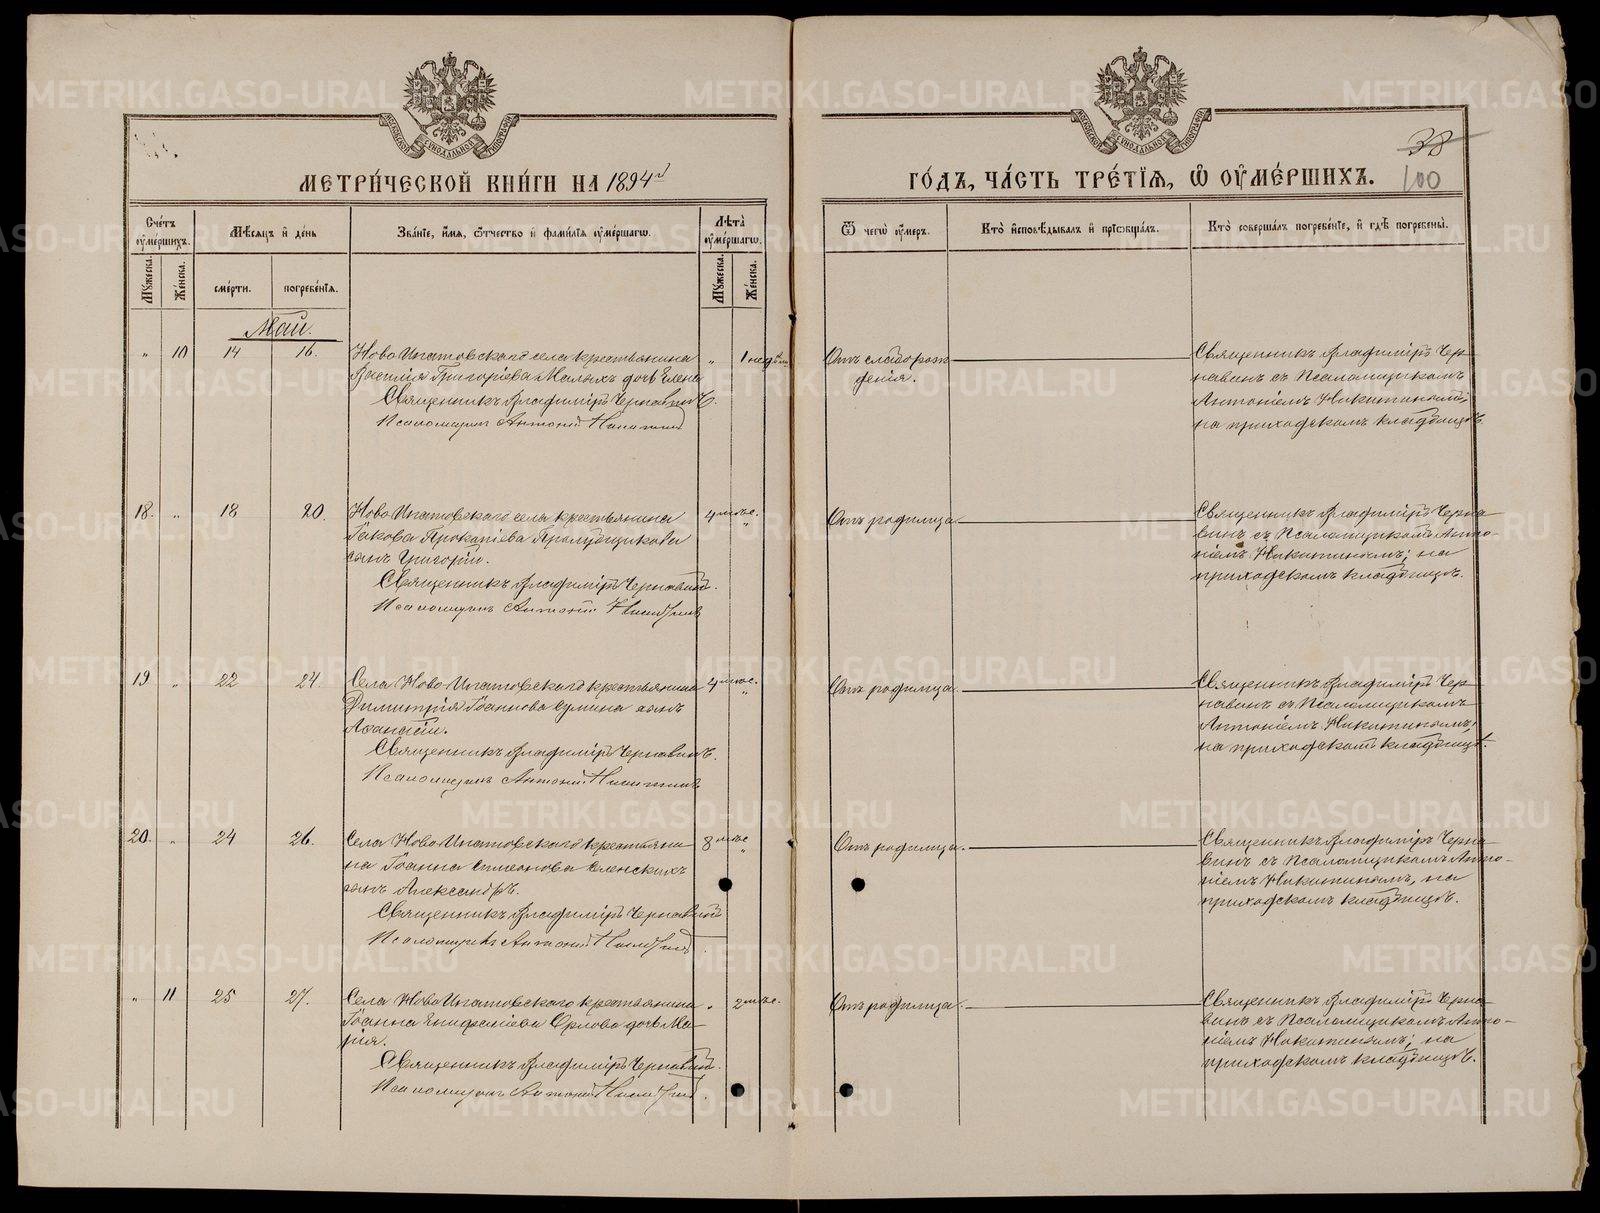 МЕТРИ́ЧЕСКОЙ КНИ́ГИ НА 1894й
ГО́ДЪ, ЧА́СТЬ ТРЕ́ТЇѦ, Ѡ ОУ҆МЕ́РШИХЪ.
38
100
Сче́тъ оу҆ме́ршихъ.
Мѣ́сѧцъ и҆ де́нь
Зва́нїе, и҆́мѧ, ѻ҆́тчество и҆ фами́лїѧ оу҆ме́ршагѡ.
Лѣ́та оу҆ме́ршагѡ.
Ѿ чегѡ̀ оу҆́меръ.
Кто̀ и҆сповѣ́дывалъ и҆ прїѡбща́лъ.
Кто̀ соверша́лъ погребе́нїе, и҆ гдѣ̀ погребены̀.
Мꙋ́жеска.
Же́нска.
сме́рти.
погребе́нїѧ.
Мꙋ́жеска.
Же́нска.
Май.
" 10 14 16.
Ново Ипатовскаго села крестьянина
Василія Григоріева Малыхъ дочь Елена
Священникъ Владиміръ Чернавинъ.
Псаломщикъ Антоній Никитинъ
" 1 недѣли
Отъ слаборож
денія.
Священникъ Владиміръ Чер
навинъ съ Псаломщикомъ
Антоніемъ Никитинымъ;
на приходскомъ кладбищѣ.
18. " 18 20.
Ново Ипатовскаго села крестьянина
Іакова Прокопіева
сынъ Григорій.
Священникъ Владиміръ Чернавинъ.
Псаломщикъ Антоній Никитинъ
4 мѣс. "
Отъ родимца
Священникъ Владиміръ Черна
винъ съ Псаломщикомъ Анто
ніемъ Никитинымъ; на
приходскомъ кладбищѣ.
19 " 22 24.
Села Ново-Ипатовскаго крестьянина
Димитрія Іоаннова Сумина сынъ
Аѳанасій.
Священникъ Владиміръ Чернавинъ.
Псаломщикъ Антоній Никитинъ
4 мѣс. "
Отъ родимца.
Священникъ Владиміръ Чер
навинъ съ Псаломщикомъ
Антоніемъ Никитинымъ;
на приходскомъ кладбищѣ.
20. " 24 26.
Села Ново Ипатовскаго крестьяни
на Іоанна Симеонова Еленскихъ
сынъ Александръ.
Священникъ Владиміръ Чернавинъ
Псаломщикъ Антоній Никитинъ
8 мѣс "
Отъ родимца.
Священникъ Владиміръ Черна
винъ съ Псаломщикомъ Анто-
ніемъ Никитинымъ, на
приходскомъ кладбищѣ.
" 11 25 27.
Села Ново Ипатовскаго крестьянина
Іоанна Епифаніева Орлова дочь Ма-
рія.
Священникъ Владиміръ Чернавинъ.
Псаломщикъ Антоній Никитинъ.
" 2 мѣс.
Отъ родимца.
Священникъ Владиміръ Черна-
винъ съ Псаломщикомъ Анто-
ніемъ Никитинымъ; на
приходскомъ кладбищѣ.
METRIKI.GASO-URAL.RU